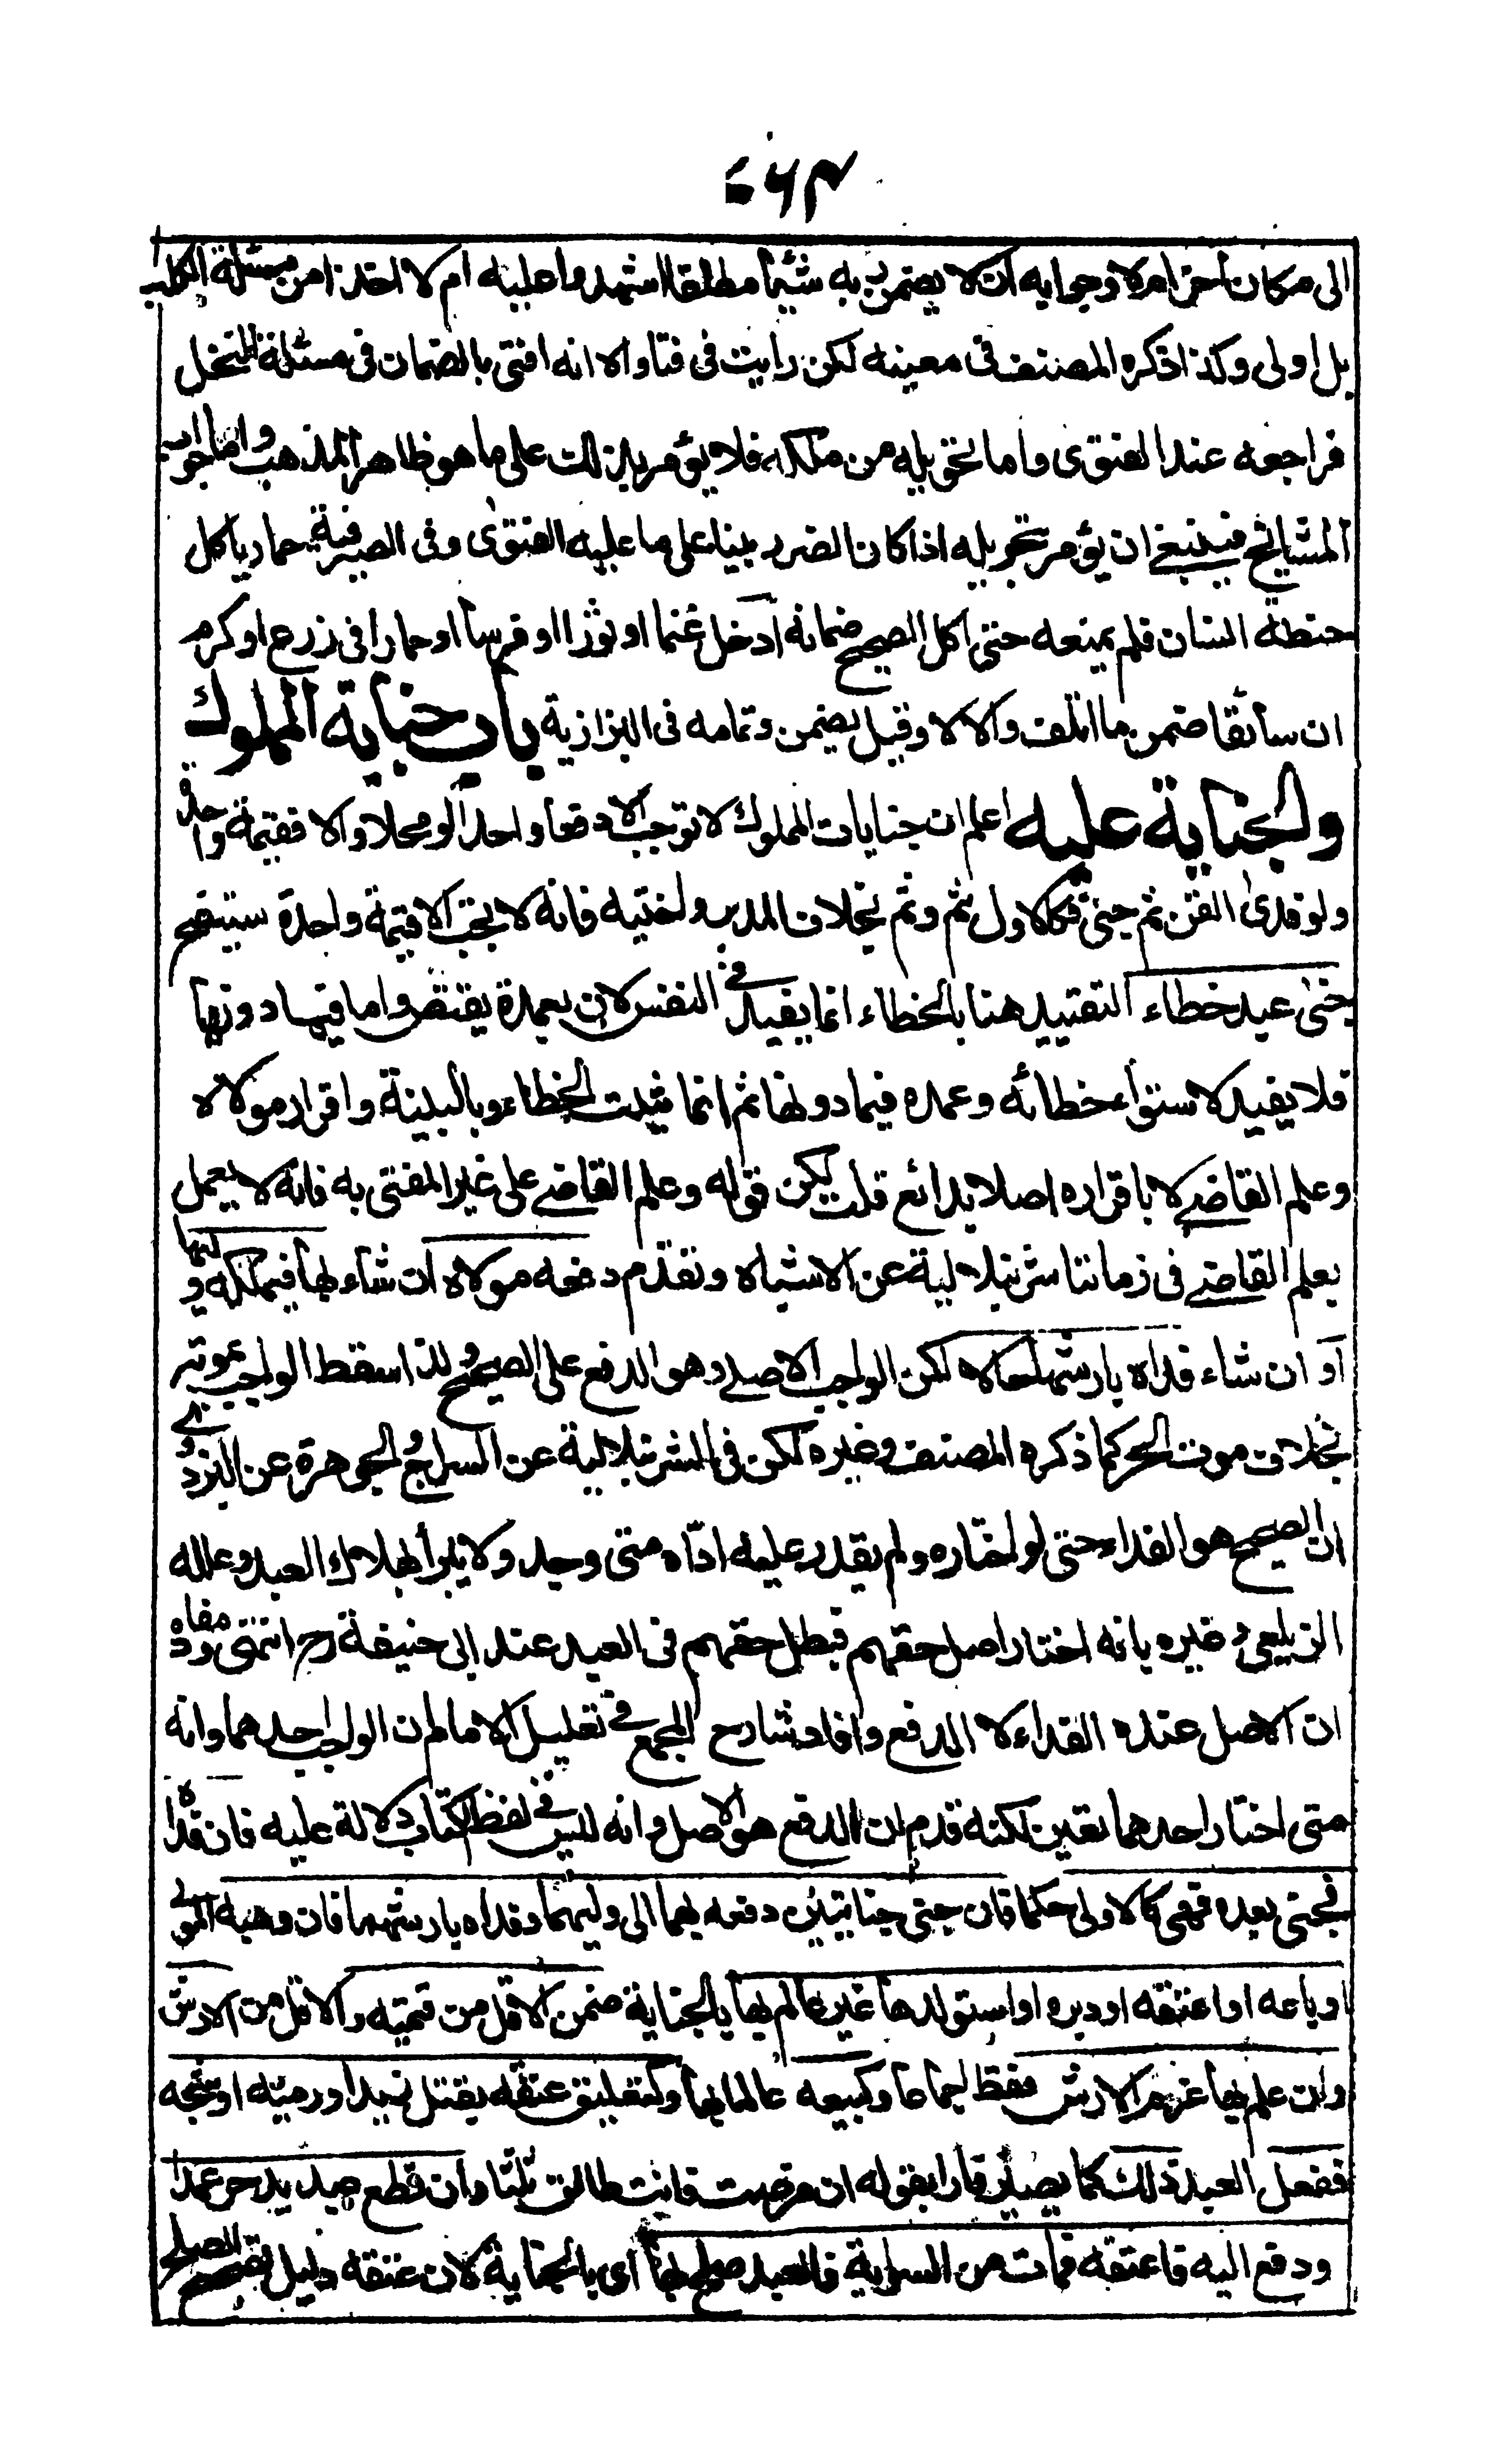 ٥٦٣
الى مكان اخر ام لا وجوابه ان لا يضمن به شيئا مطلقا اشهدوا عليه ام لا اخذا من مسئلة الكلب
بل اولى وكذا ذكره المصنف فى معينه لكن رايت فى فتاواه انه افتى بالضمان فى مسئلة النحل
فراجعه عند الفتوى واما تحويله من ملكه فلا يؤمر بذلك على ما هو ظاهر المذهب واما جواب
المشايخ فينبغي ان يؤمر بتحويله اذا كان الضرر بينا على ما عليه الفتوى وفى الصيرفية حمار ياكل
حنطة انسان فلم يمنعه حتى اكل الصحيح ضمانه ادخل غنما او ثورا او فرسا او حمارا فى زرع او كرم
ان سائقا ضمن ما اتلف والا لا وقيل يضمن وتمامه فى البزازية باب جناية المملوك
والجناية عليه اعلم ان جنايات المملوك لا توجب الا دفعا واحدا لو محلا والا فقيمة واحدة
ولو فدى القن ثم جنى فكالاول ثم وثم بخلاف المدبر واختيه فانه لا يجب الا قيمة واحدة سيتضح
جنى عبد خطاء التقييد هنا بالخطاء انما يفيد في النفس لان بعمده يقتص واما فيما دونها
فلا يفيد لاستواء خطائه وعمده فيما دونها ثم انما يثبت الخطاء بالبينة واقرار مولاه
وعلم القاضي لا باقراره اصلا بدائع قلت لكن قوله وعلم القاضي على غير المفتى به فانه لا يعمل
بعلم القاضي فى زماننا شرنبلالية عن الاشباه وتقدم دفعه مولاه ان شاء بها فيملكه وليها
او ان شاء فداه بارشها حالا لكن الواجب الاصلي هو الدفع على الصحيح ولذا سقط الواجب بموته
بخلاف موت الحر كما ذكره المصنف وغيره لكن فى الشرنبلالية عن السراج والجوهرة عن البزدوي
ان الصحيح هو الفداء حتى لو اختاره ولم يقدر عليه اداه متى وجد ولا يبرأ بهلاك العبد وعلله
الزيلعي وغيره بانه اختار اصل حقهم فبطل حقهم فى العبد عند ابى حنيفة رح انتهى ومفاده
ان الاصل عنده الفداء لا الدفع وافاد شارح المجمع في تعليل الامام ان الواجب احدهما وانه
متى اختار احدهما تعين لكنه قدم ان الدفع هو الاصل وانه ليس في لفظ الكتاب دلالة عليه فان فداه
فجنى بعده فهى كالاولى حكما فان جنى جنايتين دفعه بهما الى وليهما او فداه بارشهما فان وهبه المولى
او باعه او اعتقه او دبره او استولدها غير عالم بها بالجناية ضمن الاقل من قيمته والاقل من الارش
وان علم بها غرم الارش فقط اجماعا وكبيعه عالما بها وكتعليق عتقه بقتل زيد او رميه او شجه
ففعل العبد ذلك كما يصير فارا بقوله ان مرضت فانت طالق ثلثا وان قطع عبد يد حر عمدا
ودفع اليه فاعتقه فمات من السراية فالعبد صلح بها اى بالجناية لان عتقه دليل تصحيح الصلح